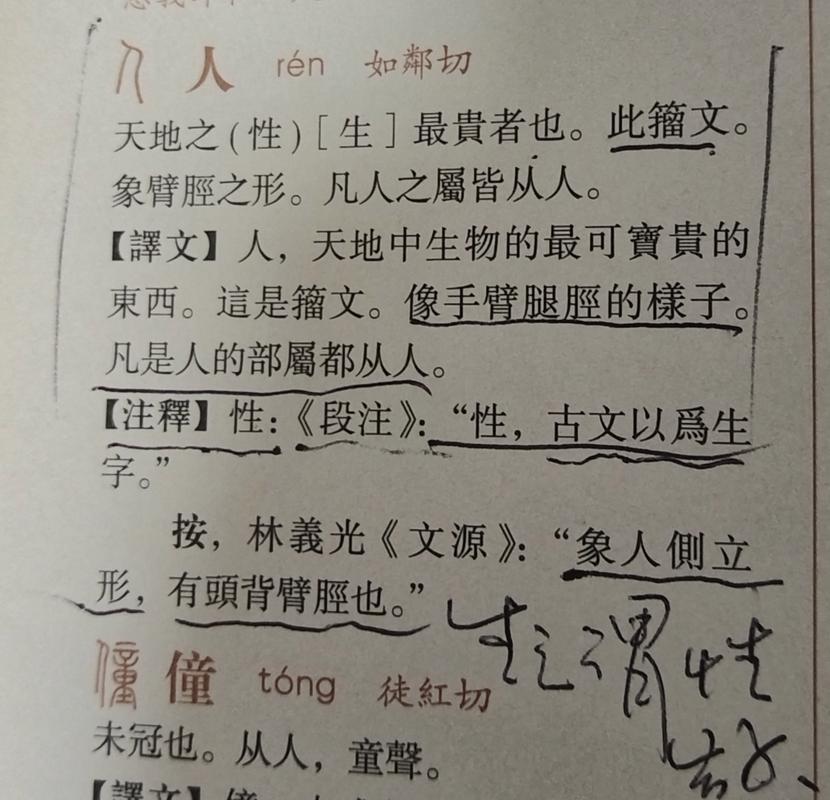 人 人 rén 如鄰切
天地之(性)[生]最貴者也。此籀文。
象臂脛之形。凡人之屬皆从人。
【譯文】人，天地中生物的最可寶貴的
東西。這是籀文。像手臂腿脛的樣子。
凡是人的部屬都从人。
【注釋】性：《段注》：“性，古文以爲生
字。”
按，林義光《文源》：“象人側立
形，有頭背臂脛也。”
生之謂性
僮 僮 tóng 徒紅切
未冠也。从人，童聲。
【譯文】僮